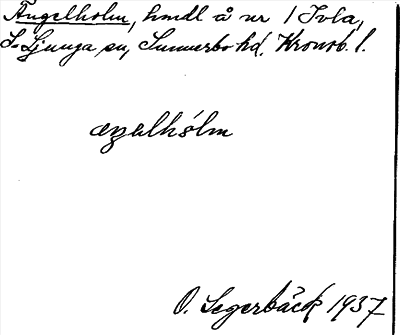 Ängelholm, hmdl å nr 1 Ivla,
S. Ljunga sn, Sunnerbo hd. Kronob. l.
æŋəlhólm
O. Segerbäck 1937